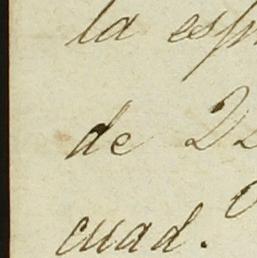 la esp
de 22
cuad.